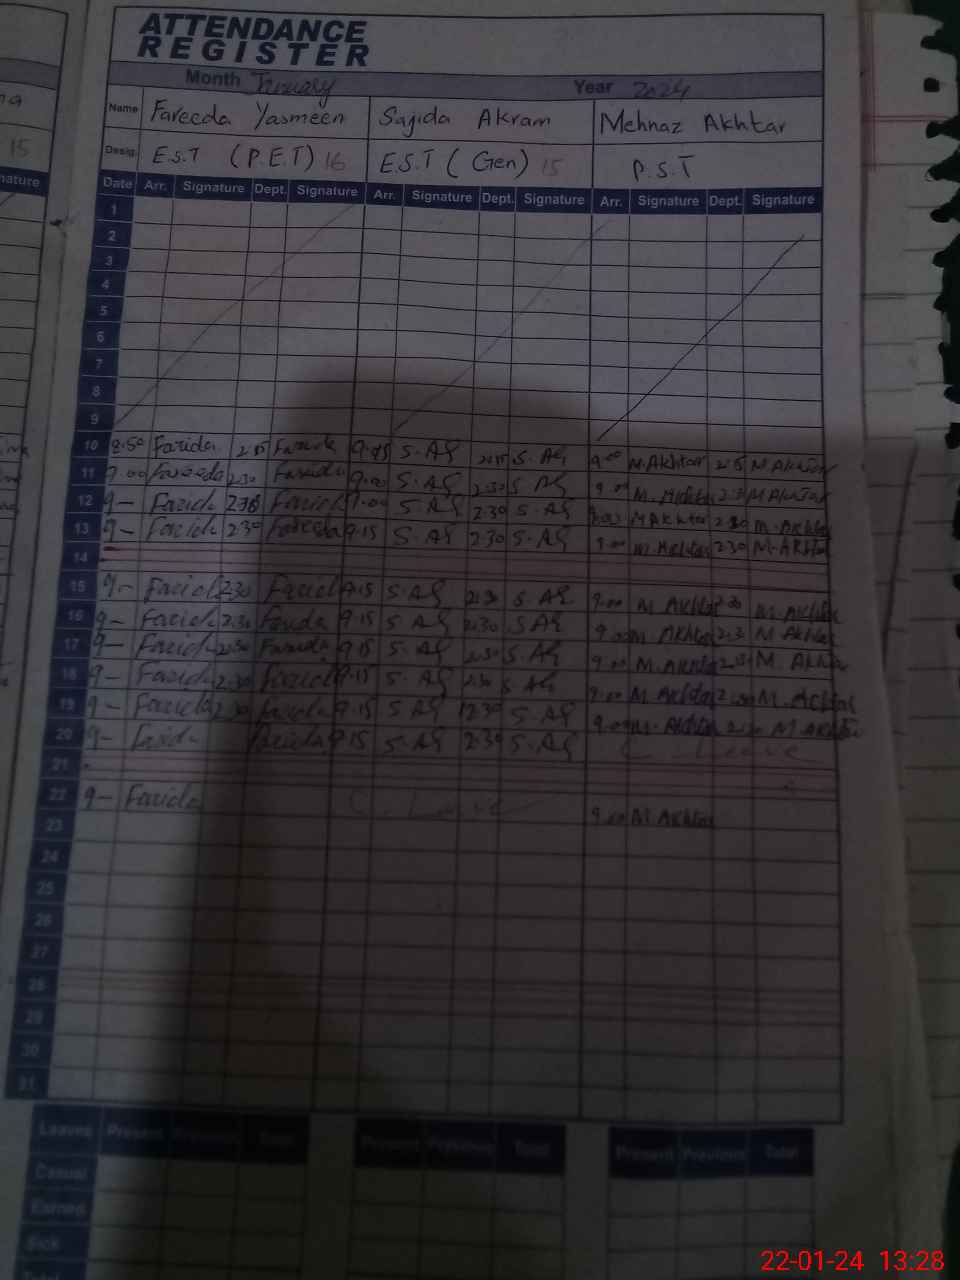 ATTENDANCE
REGISTER
Month January Year 2024
Name Fareeda Yasmeen Sajida Akram Mehnaz Akhtar
Desig. E.S.T (P.E.T) 16 E.S.T (Gen) 15 P.S.T
Date Arr. Signature Dept. Signature Arr. Signature Dept. Signature Arr. Signature Dept. Signature
1
2
3
4
5
6
7
8
9
10 8.50 Farida 2.15 Farida 9.15 S.AG S.AG 9.00 M.Akhtar 2.15 M.Akhtar
11 9.00 Fareeda 2.30 Farida 9.00 S.AG 2.30 S.AG 9.00 M.Akhtar 2.30 M.Akhtar
12 9- Farida 2.30 Farida 9.00 S.AG 2.30 S.AG 9.00 M.Akhtar 2.30 M.Akhtar
13 9- Farida 2.30 Fareeda 9.15 S.AG 2.30 S.AG 9.00 M.Akhtar 2.30 M.Akhtar
14
15 9- Farida 2.30 Farida 9.15 S.AG 2.30 S.AG 9.00 M.Akhtar 2.30 M.Akhtar
16 9- Farida 2.30 Farida 9.15 S.AG 2.30 S.AG 9.00 M.Akhtar 2.3 M.Akhtar
17 9- Farida 2.30 Farida 9.15 S.AG 2.30 S.AG 9.00 M.Akhtar 2.30 M.Akhtar
18 9- Farida 2.30 Farida 9.15 S.AG 2.30 S.AG 9.00 M.Akhtar 2.30 M.Akhtar
19 9- Farida 2.30 Farida 9.15 S.AG 2.30 S.AG 9.00 M.Akhtar 2.30 M.Akhtar
20 9- Farida Farida 9.15 S.AG 2.30 S.AG C. Leave
21
22 9- Farida C. Leave 9.00 M.Akhtar
23
24
25
26
27
28
29
30
31
Leaves Present Previous Total Present Previous Total Present Previous Total
Casual
Earned
Sick
Total
22-01-24 13:28